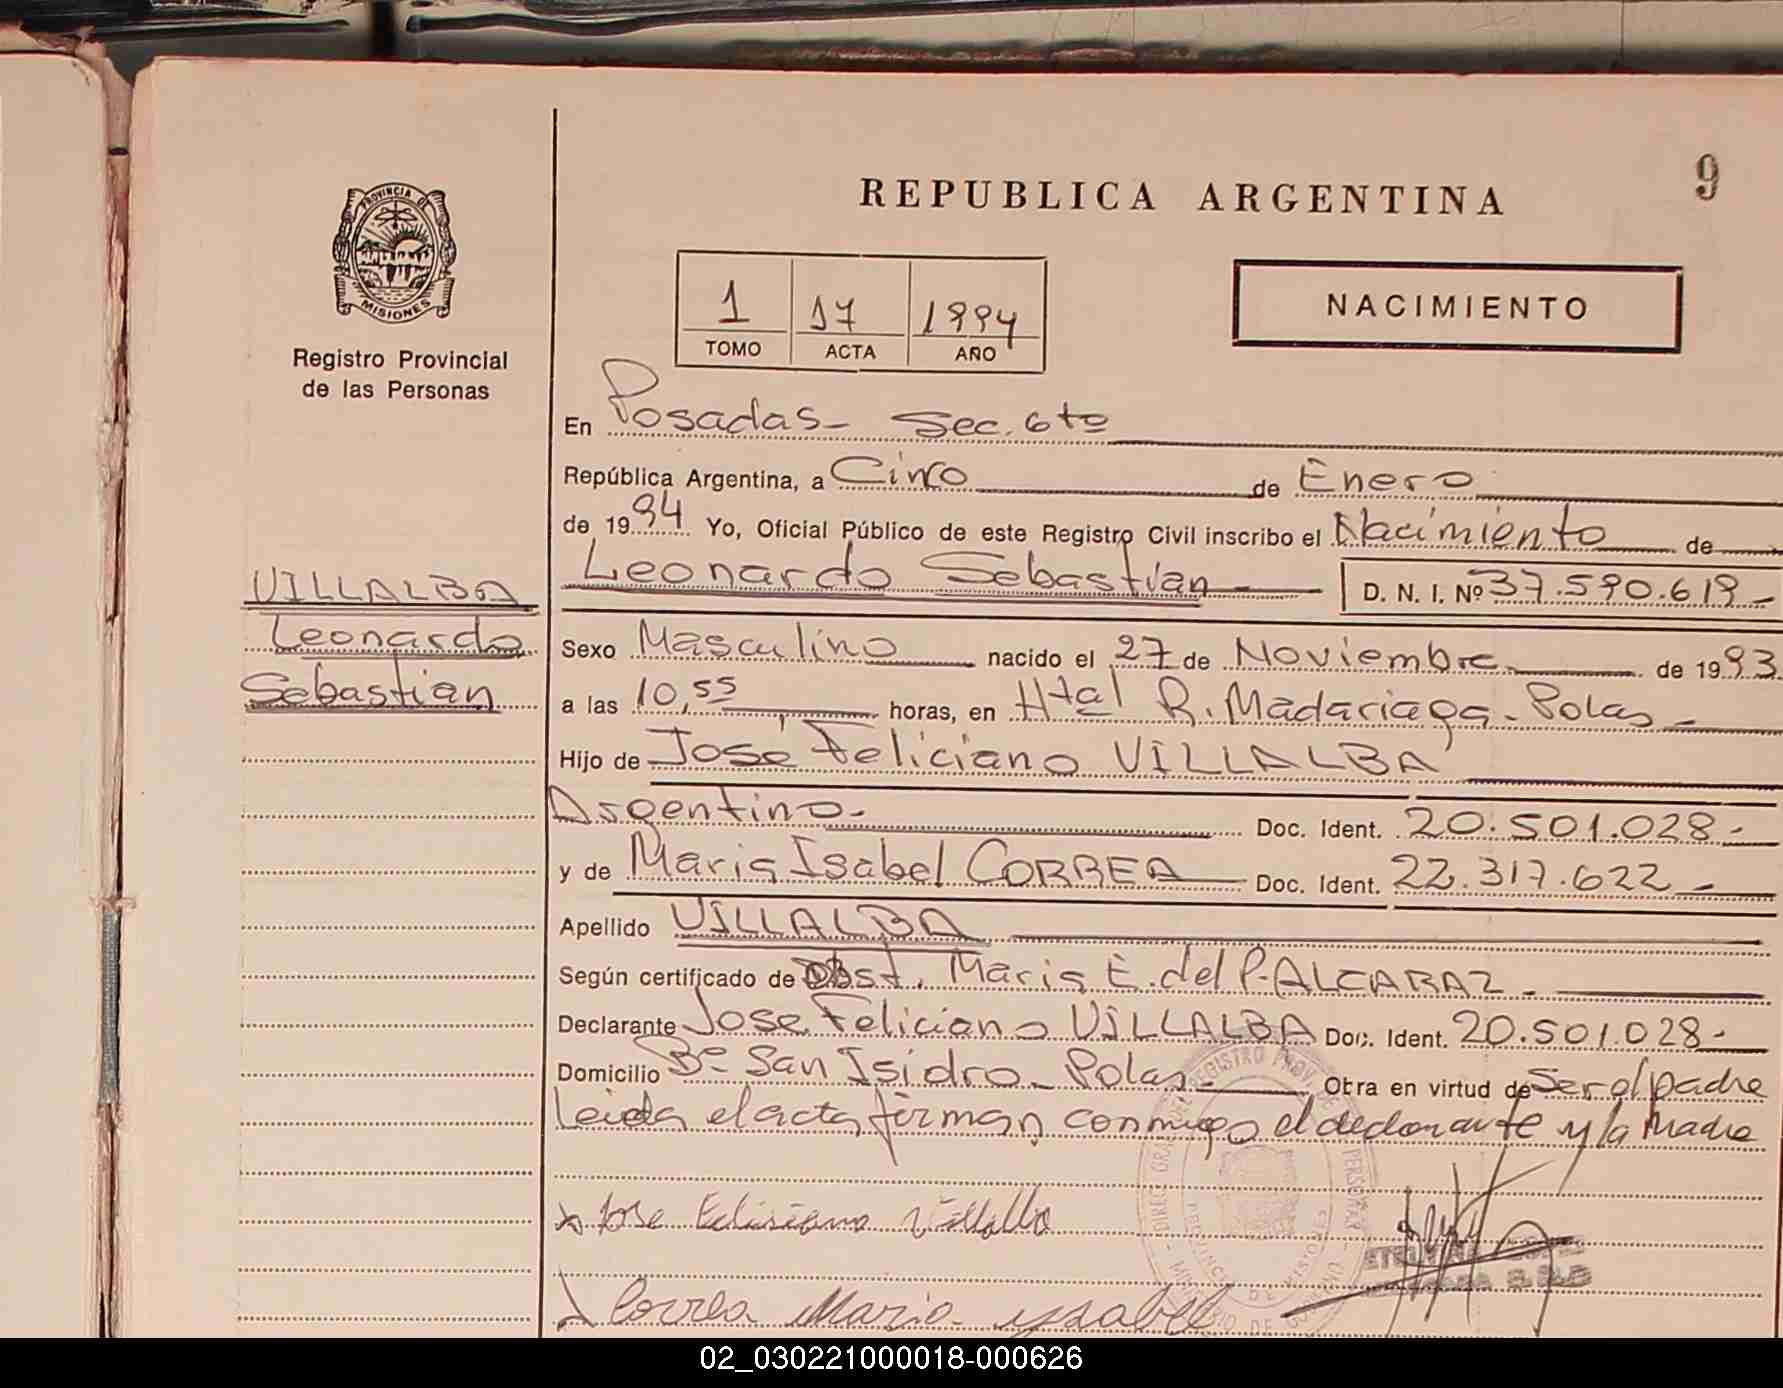 9
REPUBLICA ARGENTINA
PROVINCIA DE
MISIONES
Registro Provincial
de las Personas
1 17 1994
TOMO ACTA AÑO
NACIMIENTO
En Posadas - Sec. 6ta
República Argentina, a Cinco de Enero
de 1994 Yo, Oficial Público de este Registro Civil inscribo el Nacimiento de
Leonardo Sebastian - D. N. I. Nº 37.590.619 -
VILLALBA
Leonardo
Sebastian
Sexo Masculino nacido el 27 de Noviembre de 1993
a las 10,55 horas, en Htal R. Madariaga - Pdas -
Hijo de José Feliciano VILLALBA
Argentino - Doc. Ident. 20.501.028 -
y de Maria Isabel CORREA Doc. Ident. 22.317.622 -
Apellido VILLALBA
Según certificado de Obst. Maria E. del P. ALCARAZ -
Declarante Jose Feliciano VILLALBA Doc. Ident. 20.501.028 -
Domicilio Bº San Isidro - Pdas - Obra en virtud de ser el padre
Leida el acta firman conmigo el declarante y la Madre
x Jose Feliciano Villalba
x Correa Maria ysabel
02_030221000018-000626